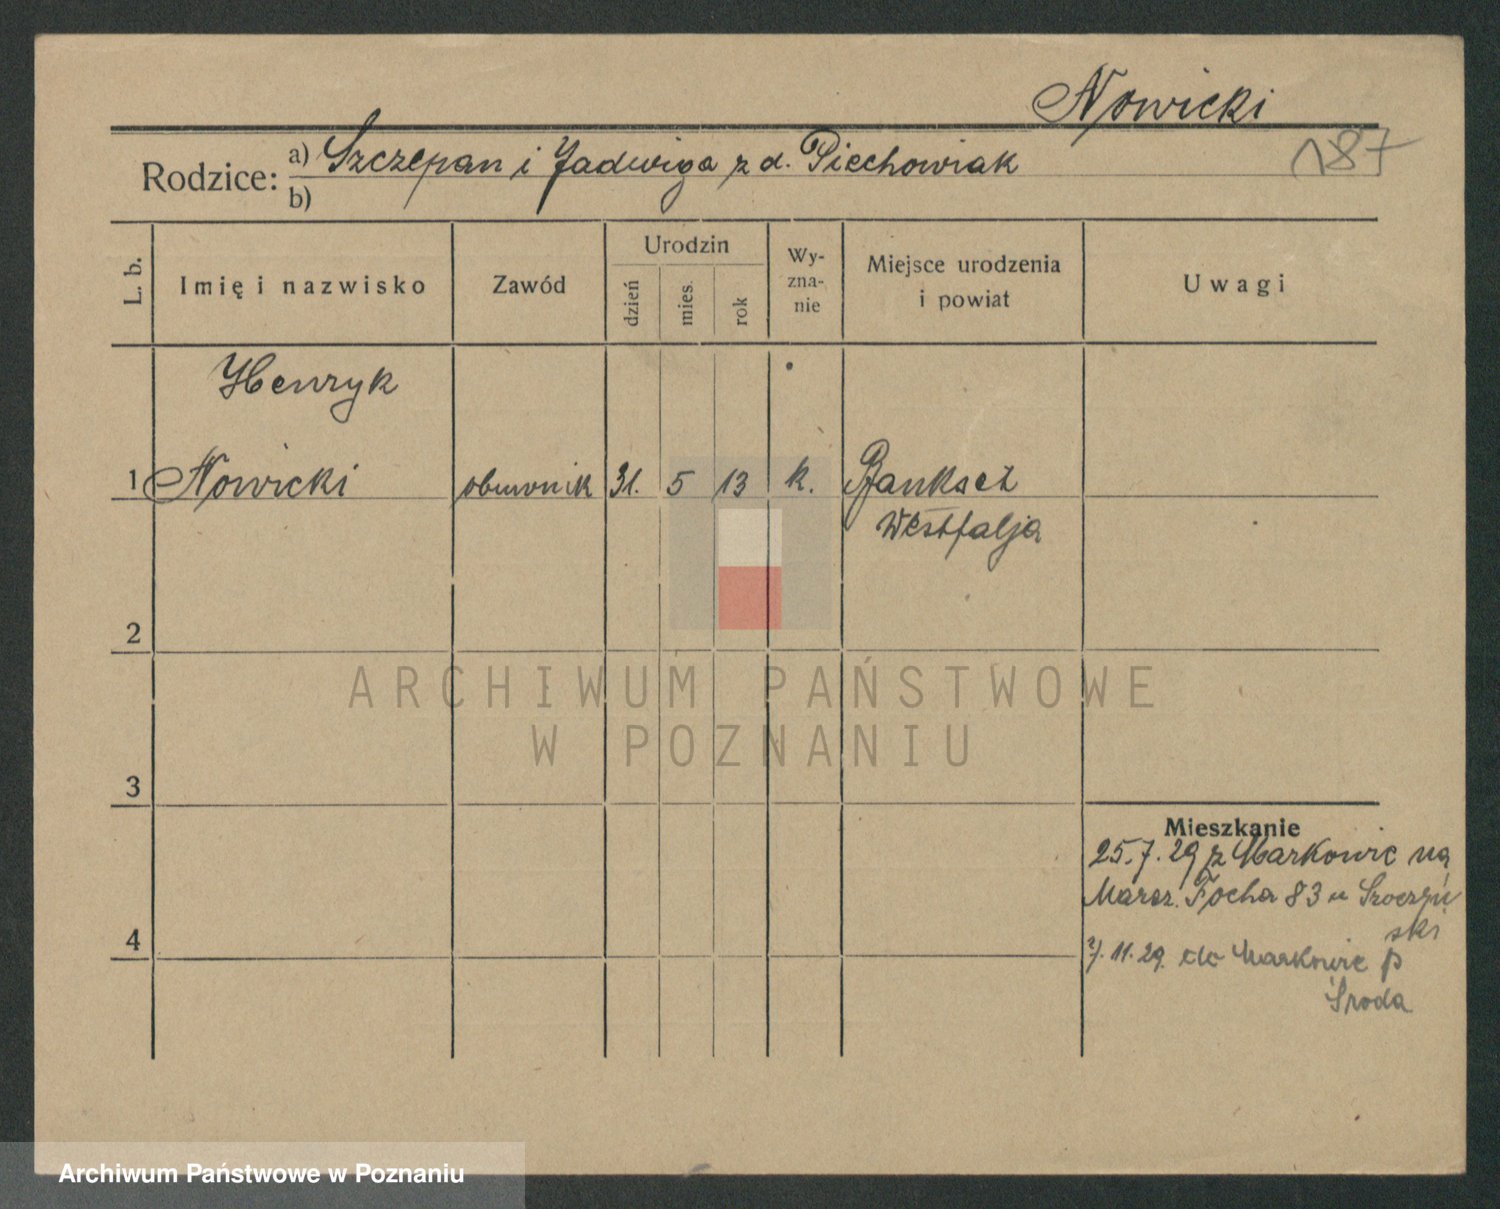 Nowicki
187
Rodzice: a) Szczepan i Jadwiga z d. Piechowiak
b)
L. b.
Imię i nazwisko
Zawód
Urodzin
dzień
mies.
rok
Wy-
zna-
nie
Miejsce urodzenia
i powiat
Uwagi
Henryk
1 Nowicki obuwnik 31. 5 13 k.
Westfalja
2
3
4
Mieszkanie
25.7.29 z Markowic na
Marsz. Focha 83 u
ski
7.11.29. do Markowic p
Środa
ARCHIWUM PAŃSTWOWE
W POZNANIU
Archiwum Państwowe w Poznaniu